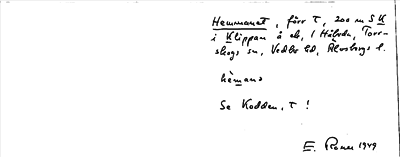 Hemmanet, förr T, 200 m S K
i Klippan å ek, 1 Håbole, Torr-
skogs sn, Vedbo hd, Älvsborgs l.
hèmanə
Se Kodden, T !
E. Rosen 1949